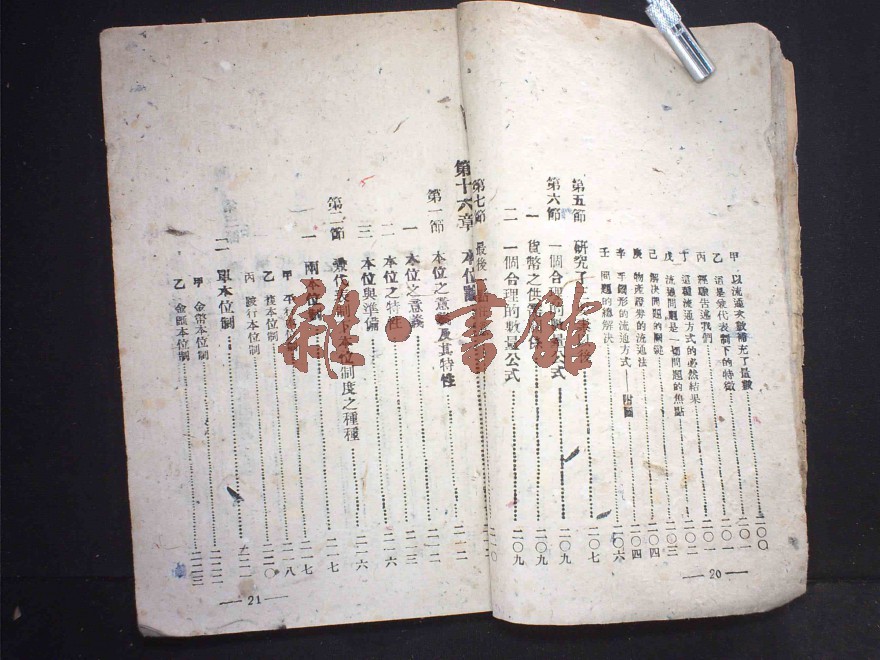 甲 以流通次數補充了量數……二〇〇
乙 這是兌代表制下的特徵……二〇一
丙 經驗告訴我們……二〇一
丁 這種流通方式的必然結果……二〇二
戊 流通問題是一切問題的焦點……二〇三
己 解決問題的關鍵……二〇四
庚 物產證券的流通法……二〇四
辛 手鐲形的流通方式——附圖……二〇六
壬 問題的總解決……二〇七
第五節 研究了……後……二〇七
第六節 一個合理的數量公式……二〇九
一 貨幣之性……二〇九
二 一個合理的數量公式……二〇九
第七節 最後一……二一〇
— 20 —
第十六章 本位……二一二
第一節 本位之意義及其特性……二一二
一 本位之意義……二一三
二 本位之特性……二一六
三 本位與準備……二一六
第二節 兌代表制下本位制度之種種……二一七
一 兩本位制……二一七
甲 平行本位制……二一八
乙 複本位制……二二〇
丙 跛行本位制……二二一
二 單本位制……二二二
甲 金幣本位制……二二二
乙 金匯本位制……二二三
— 21 —
雜·書館